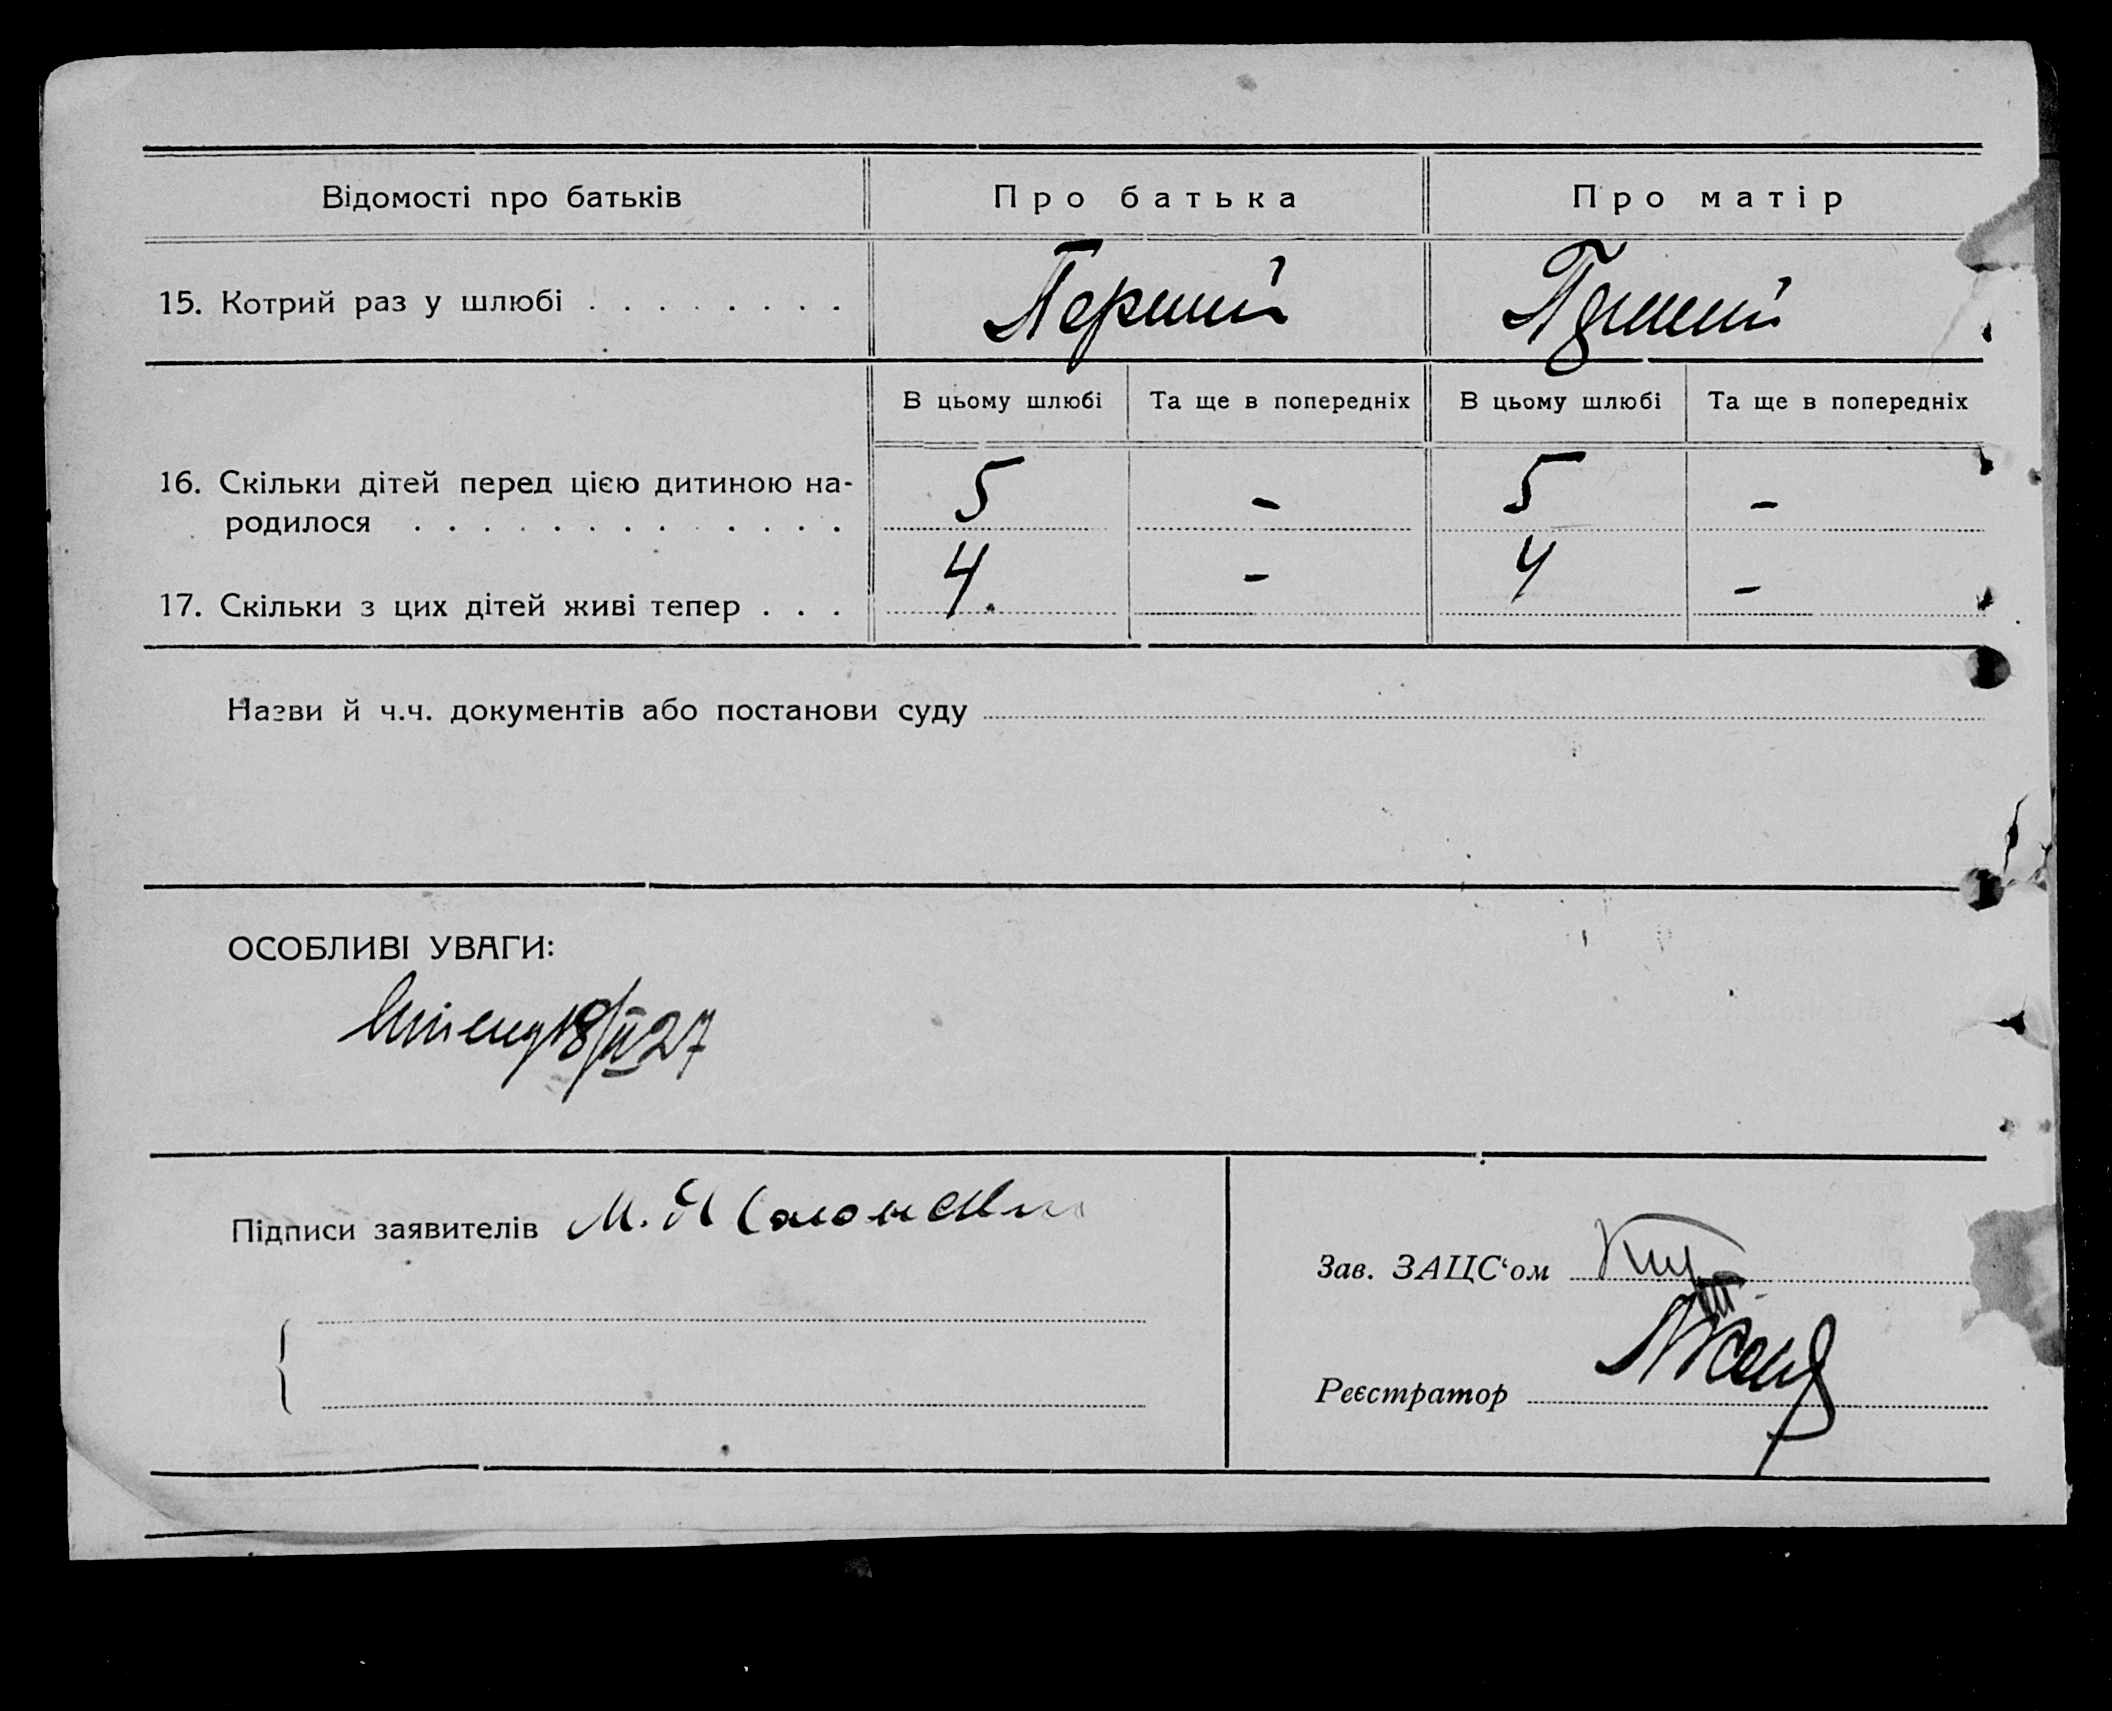 Відомості про батьків Про батька Про матір
15. Котрий раз у шлюбі . . . . . . . . Перший Перший
В цьому шлюбі Та ще в попередніх В цьому шлюбі Та ще в попередніх
16. Скільки дітей перед цією дитиною на-
родилося . . . . . . . . . . . . . 5 - 5 -
17. Скільки з цих дітей живі тепер . . . 4 - 4 -
Назви й ч.ч. документів або постанови суду
ОСОБЛИВІ УВАГИ:
18/II 27
Підписи заявителів М.
Зав. ЗАЦС‘ом
Реєстратор